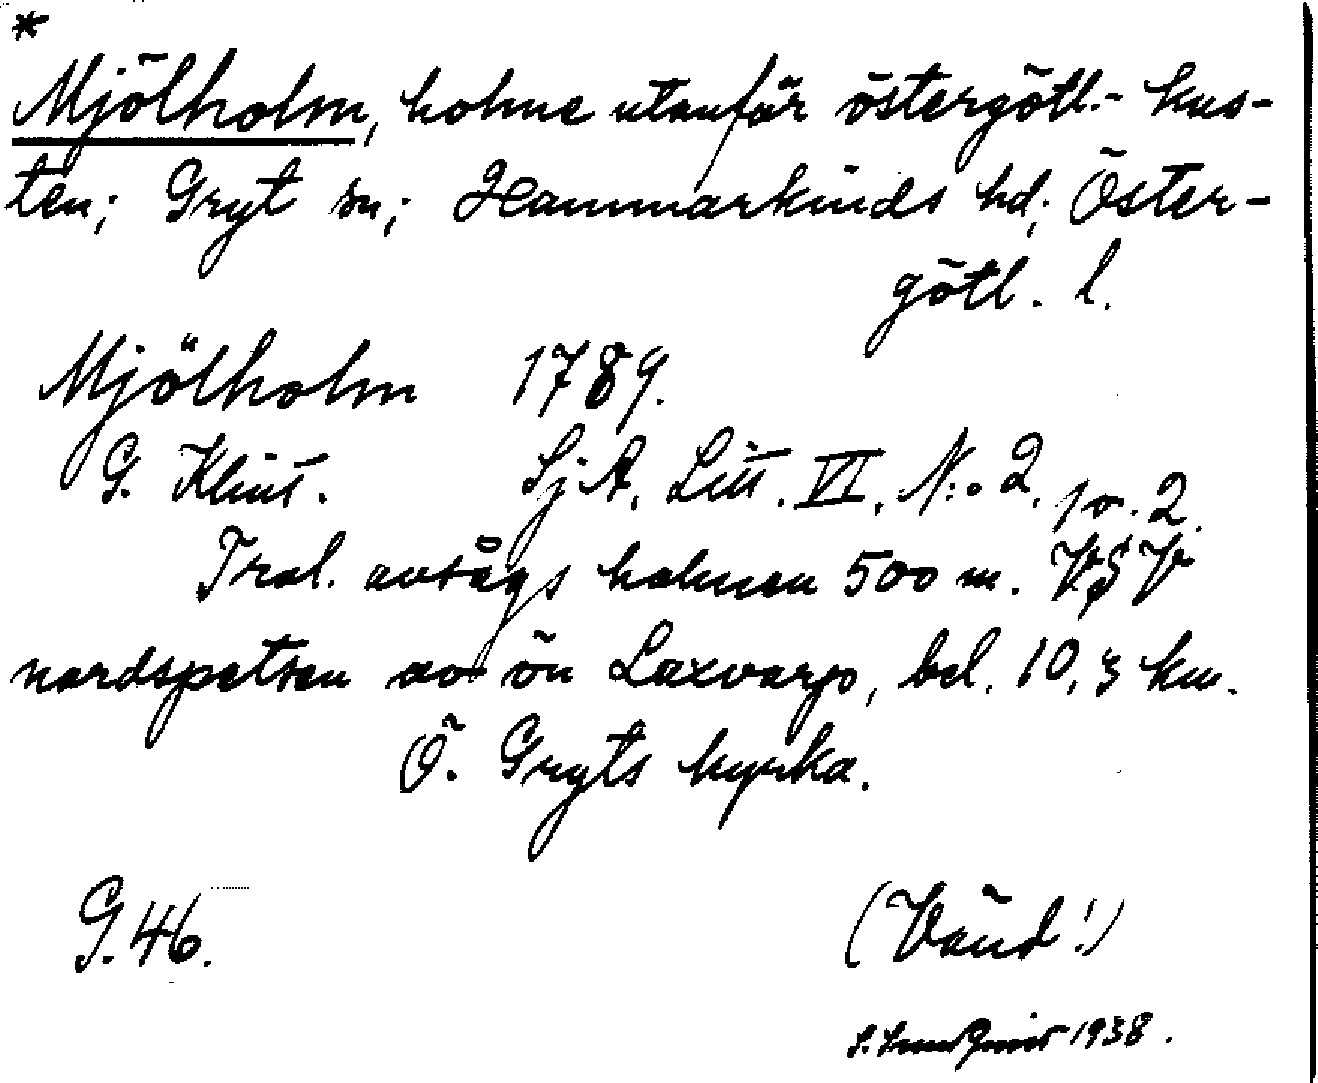 *
Mjölholm, holme utanför östergötl.- kus-
ten; Gryt sn; Hammarkinds hd; Öster-
götl. l.
Mjölholm 1789.
G. Klint. SjA, Litt. VI, N:o 2, pr. 2.
Trol. avsågs holmen 500 m. VSV
nordspetsen av ön Laxvarp, bel. 10,3 km.
Ö. Gryts kyrka.
G. 46.
(Vänd!)
1938.